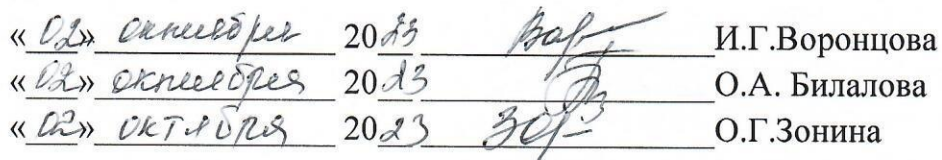 «02» октября 2023 И.Г.Воронцова
«02» октября 2023 О.А. Билалова
«02» октября 2023 О.Г.Зонина